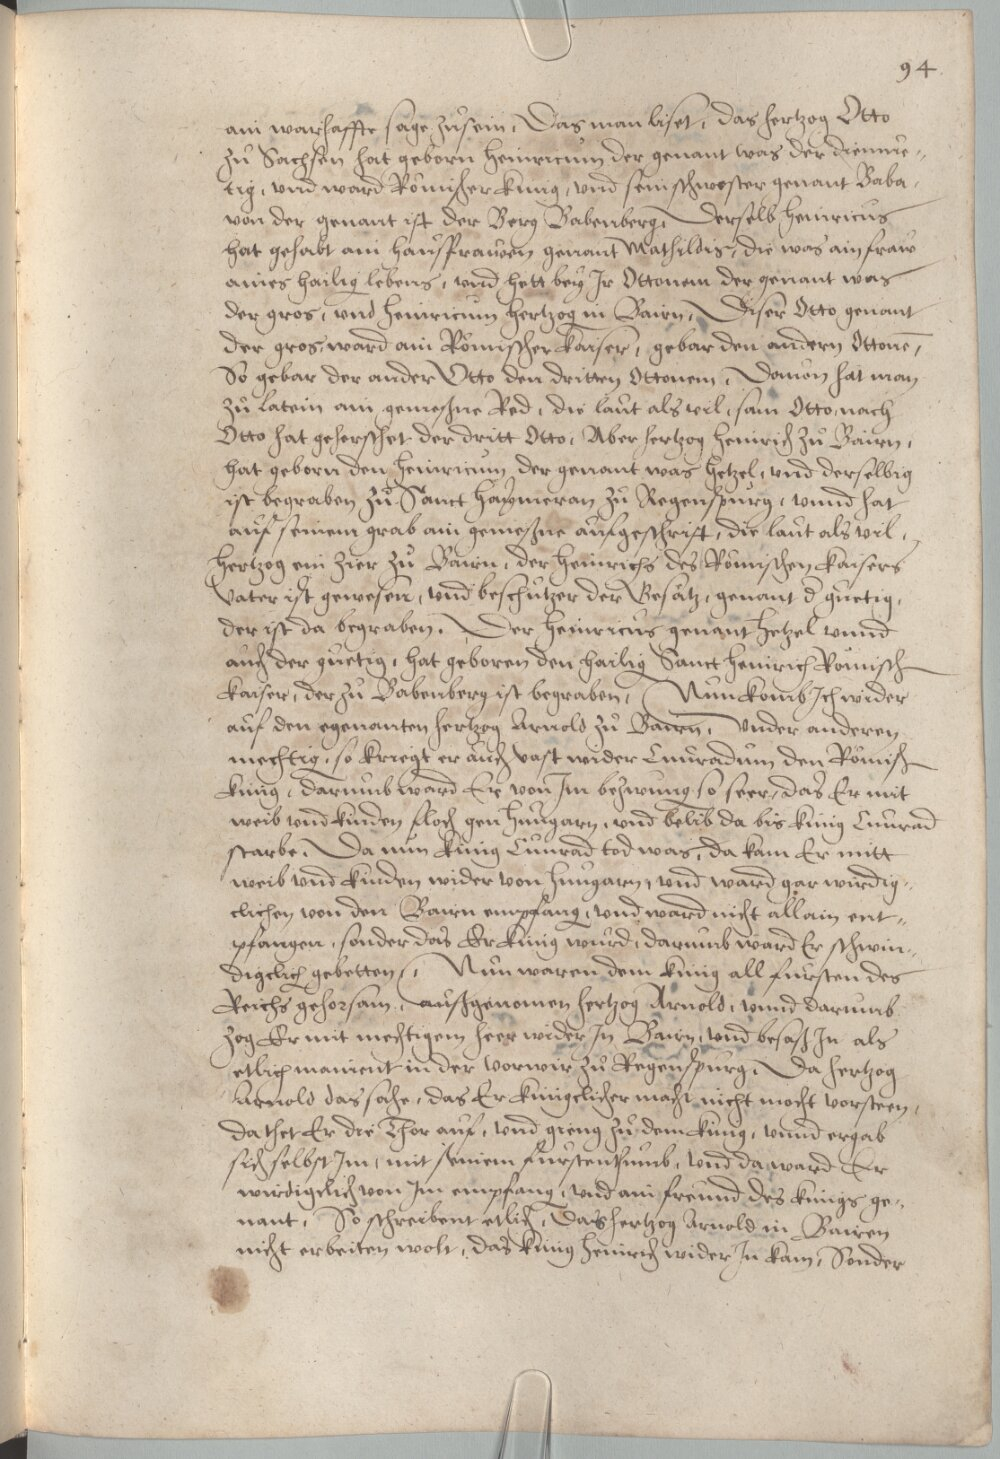 94
ain warhaffte sage zůsein, Das man liset, das hertzog Otto
zů Sachsen hat geborn Heinricum der genant was der diemue-
tig, vnd ward Römischer künig, vnd sein schwester genant Baba,
von der genant ist der Berg Babenberg, Derselb Heinricus
hat gehabt ain hausfrauen genant Mathildis, die was ain fraw
aines hailig lebens, vnd hett bey Ir Ottonem der genant was
der gros, vnd Heinricum hertzog in Bairn, Diser Otto genant
der gros, ward ain Römischer kaiser, gebar den andern Ottonē,
So gebar der ander Otto den dritten Ottonem, Dauon hat man
zů latein ain gemeßne Red, die laut als vil, sam Otto, nach
Otto hat geherschet der dritt Otto, Aber hertzog Heinrich zů Bairn,
hat geborn den Heinricum der genant was Hetzel, vnd derselbig
ist begraben zů Sanct Haymeran zů Regenspurg, vnnd hat
auf seinem grab ain gemeßne aufgeschrift, die laut als vil,
Hertzog ein zier zů Bairn, der Heinrichs des Römischen kaisers
vater ist gewesen, vnd beschützer der Gesätz, genant d guetig,
der ist da begraben. Der Heinricus genant Hetzel vnnd
auch der guetig, hat geboren den hailig Sanct Heinrich Römisch
kaiser, der zů Babenberg ist begraben, Nun komb Ich wider
auf den egenanten hertzog Arnold zů Bairn, Vnder anderen
mechtig, so kriegt er auch vast wider Cunradum den Römisch
künig, darumb ward Er von Im bezwung so seer, das Er mit
weib vnd kinden floch gen Hungarn, vnd belib da bis künig Cunrad
starbe. Da nun künig Cunrad tod was, da kam Er mitt
weib vnd kinden wider von Hungarn, vnd ward gar wirdig-
clichen von den Bairn empfang, vnd ward nicht allain ent-
pfangen, sonder das Er künig wurd, darumb ward Er schwin-
digclich gebetten, Nun waren dem künig all fürsten des
Reichs gehorsam, außgenomen hertzog Arnold, vnnd darumb
zog Er mit mechtigem heer wider In Bairn, vnd besaß In als
etlich mainent in der vorwir zů Regenspurg, Da hertzog
Arnold das sahe, das Er künigclicher macht nicht mocht vorsteen,
da thet Er die Thor auf, vnd gieng zů dem künig, vnnd ergab
sich selbst Im, mit seinem fürstenthumb, vnd da ward Er
wirdigclich von Im empfang, vnd ain freund des künigs ge-
nant, So schreibent etlich, Das hertzog Arnold in Bairen
nicht erbeiten wolt, das künig Heinrich wider In kam, Sonder